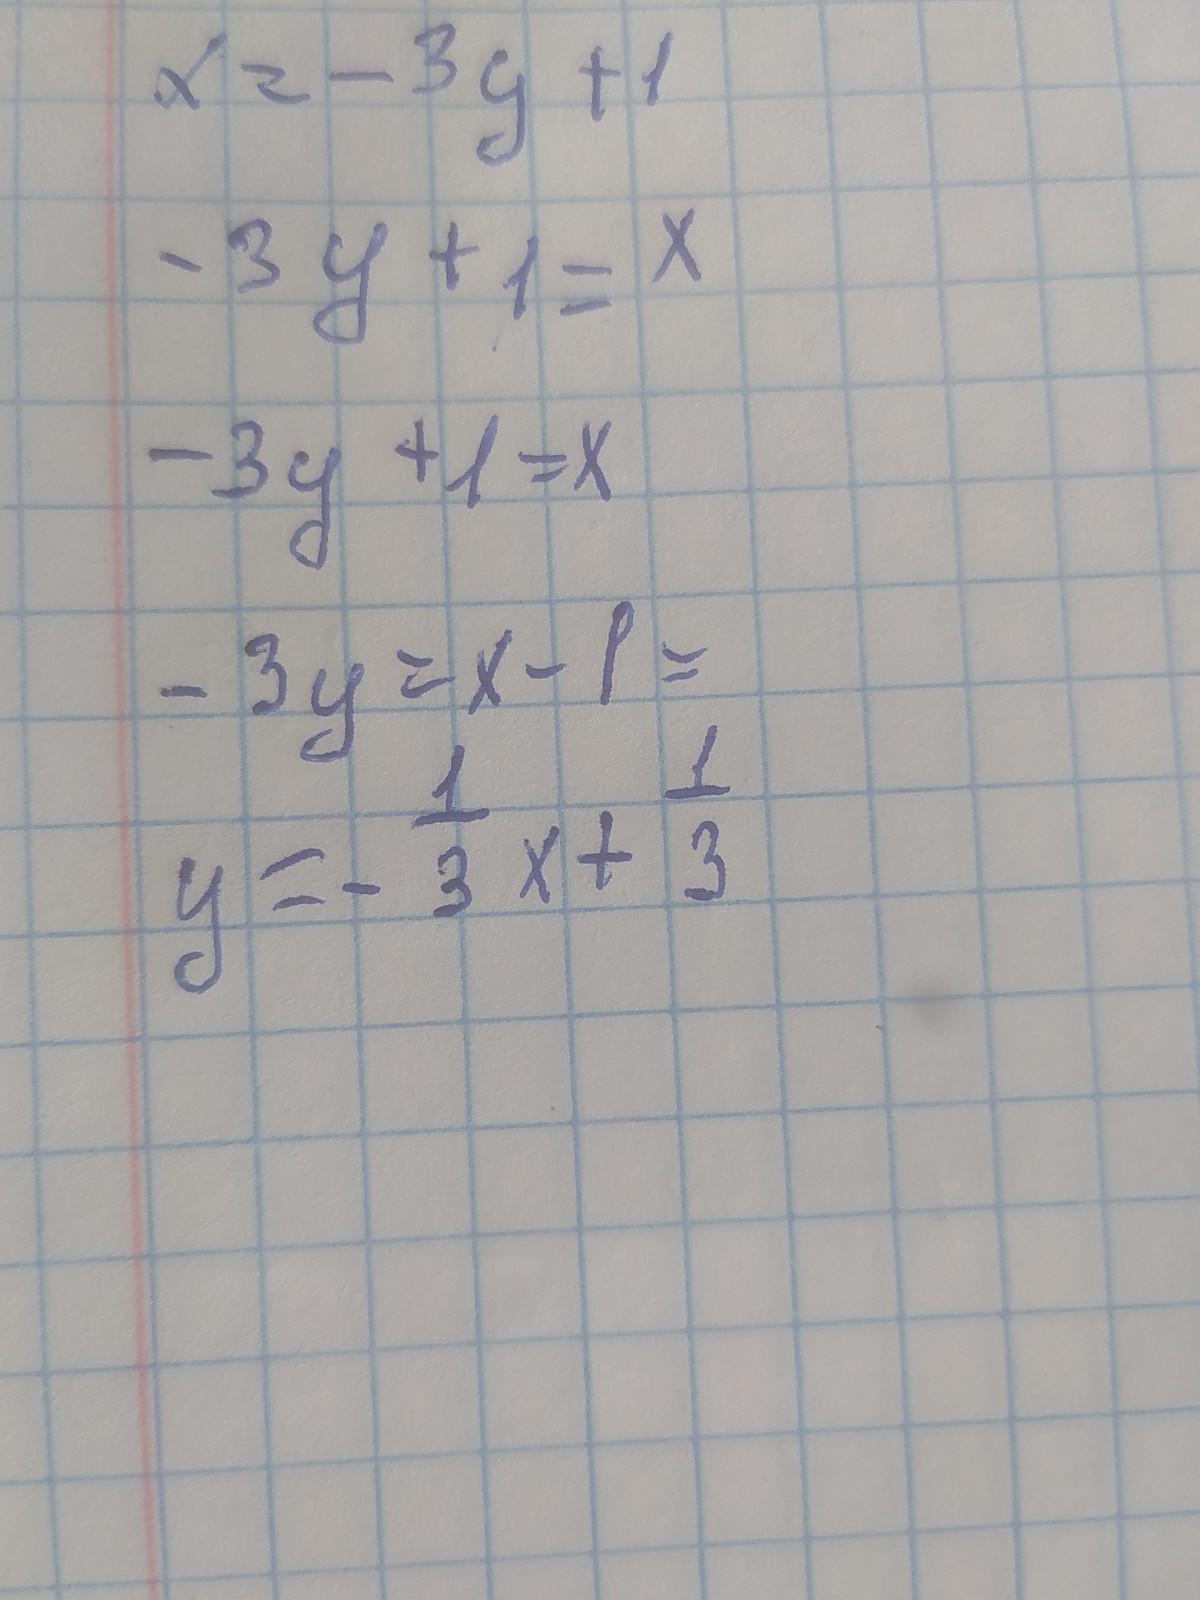 x = -3y + 1
-3y + 1 = x
-3y + 1 = x
-3y = x - 1 =
y = -1/3 x + 1/3